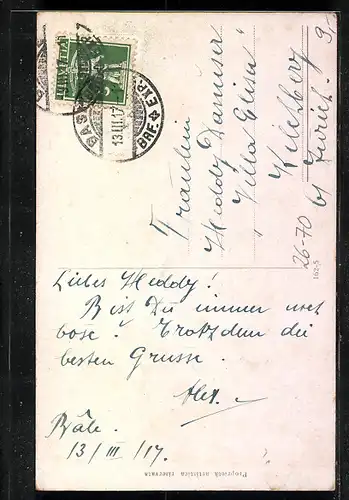 HELVETIA
BASEL
13.III.17
BRF. EXP.
Fräulein
Heddy Danuser
Villa Elisa
Kilchberg
b/ Zürich.
26-70
162-5
Liebes Heddy!
Bist Du immer noch
böse? Trotzdem die
besten Grüsse.
Alex.
Bâle.
13/III/17.
Proprietà artistica riservata